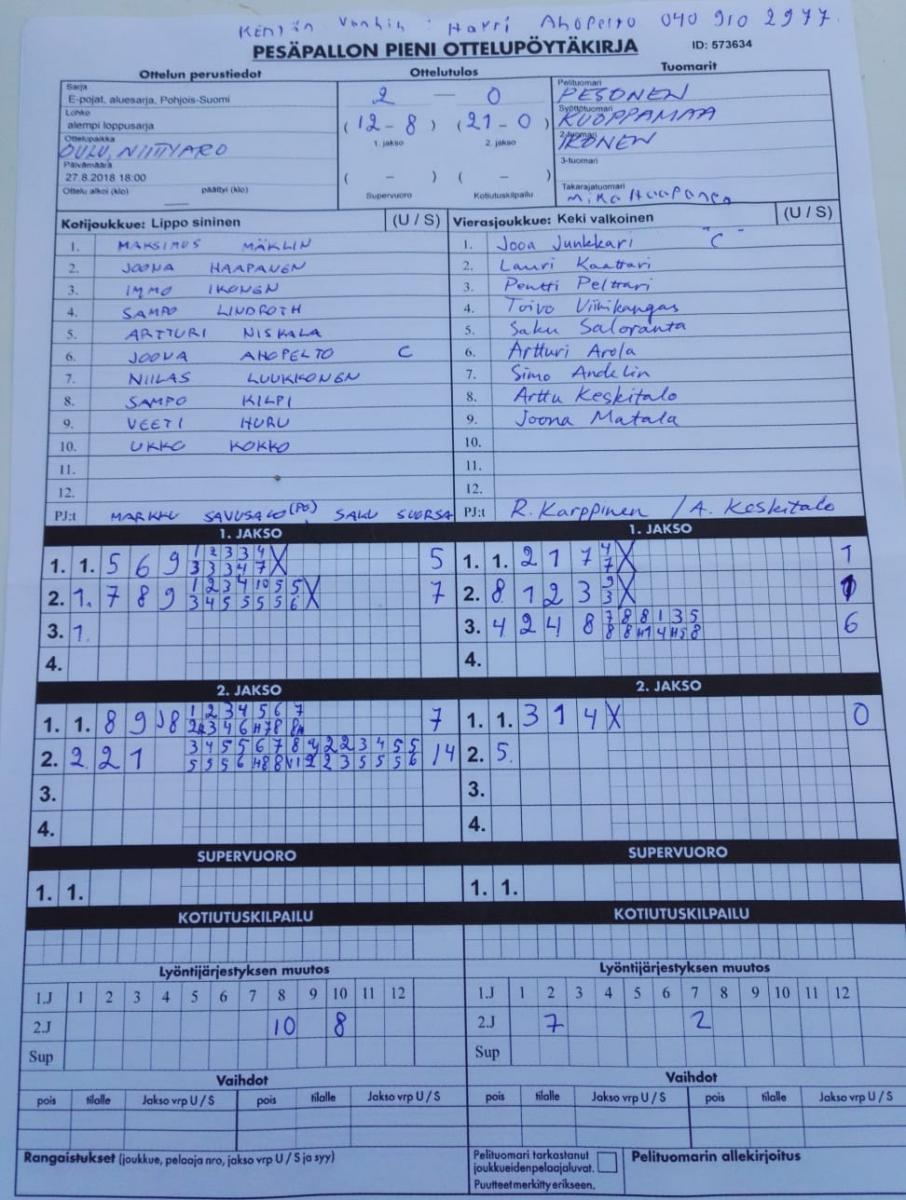 Kentän Vanhin : Harri Ahopelto 040 910 2977
PESÄPALLON PIENI OTTELUPÖYTÄKIRJA ID: 573634
Ottelun perustiedot Ottelutulos Tuomarit
Sarja
E-pojat, aluesarja, Pohjois-Suomi
Lohko
alempi loppusarja
Ottelupaikka
OULU, NIITTYARO
Päivämäärä
27.8.2018 18:00
Ottelu alkoi (klo) päättyi (klo)
2 — 0
(12-8) (21-0)
1. jakso 2. jakso
( - ) ( - )
Supervuoro Kotiutuskilpailu
Pelituomari
PESONEN
Syöttötuomari
KUOPPAMAA
2-tuomari
IKONEN
3-tuomari
Takarajatuomari
Mika Haapanen
Kotijoukkue: Lippo sininen (U / S)
1. MAKSIMUS MÄKLIN
2. JOONA HAAPANEN
3. IMMO IKONEN
4. SAMPO LINDROTH
5. ARTTURI NISKALA
6. JOONA AHOPELTO C
7. NIILAS LUUKKONEN
8. SAMPO KILPI
9. VEETI HURU
10. UKKO KOKKO
11.
12.
PJ:t MARKKU SAVUSALO (PO), SAKU SUORSA
Vierasjoukkue: Keki valkoinen (U / S)
1. Jooa Junkkari "C"
2. Lauri Kaattari
3. Pentti Pelttari
4. Toivo Viirikangas
5. Saku Saloranta
6. Artturi Arola
7. Simo Andelin
8. Arttu Keskitalo
9. Joona Matala
10.
11.
12.
PJ:t R. Karppinen / A. Keskitalo
1. JAKSO
1. 1. 5 6 9 1 2 3 3 4 X 5
3 3 3 4 7
2. 1. 7 8 9 1 2 3 4 10 5 5 X 7
3 4 5 5 5 5 6
3. 1.
4.
1. JAKSO
1. 1. 2 1 7 4 X 1
7
2. 8 1 2 3 9 X 1
3
3. 4 2 4 8 7 8 8 1 3 5 6
4.
2. JAKSO
1. 1. 8 9 8 1 2 3 4 5 6 7 7
2. 2 2 1 3 4 5 5 6 7 8 2 2 3 4 5 5 14
3.
4.
2. JAKSO
1. 1. 3 1 4 X 0
2. 5.
3.
4.
SUPERVUORO
1. 1.
SUPERVUORO
1. 1.
KOTIUTUSKILPAILU
KOTIUTUSKILPAILU
Lyöntijärjestyksen muutos
1.J 1 2 3 4 5 6 7 8 9 10 11 12
2.J 10 8
Sup
Lyöntijärjestyksen muutos
1.J 1 2 3 4 5 6 7 8 9 10 11 12
2.J 7 2
Sup
Vaihdot
pois tilalle Jakso vrp U / S pois tilalle Jakso vrp U / S
Vaihdot
pois tilalle Jakso vrp U / S pois tilalle Jakso vrp U / S
Rangaistukset (joukkue, pelaaja nro, jakso vrp U / S ja syy)
Pelituomari tarkastanut
joukkueidenpelaajaluvat.
Puutteet merkitty erikseen.
Pelituomarin allekirjoitus